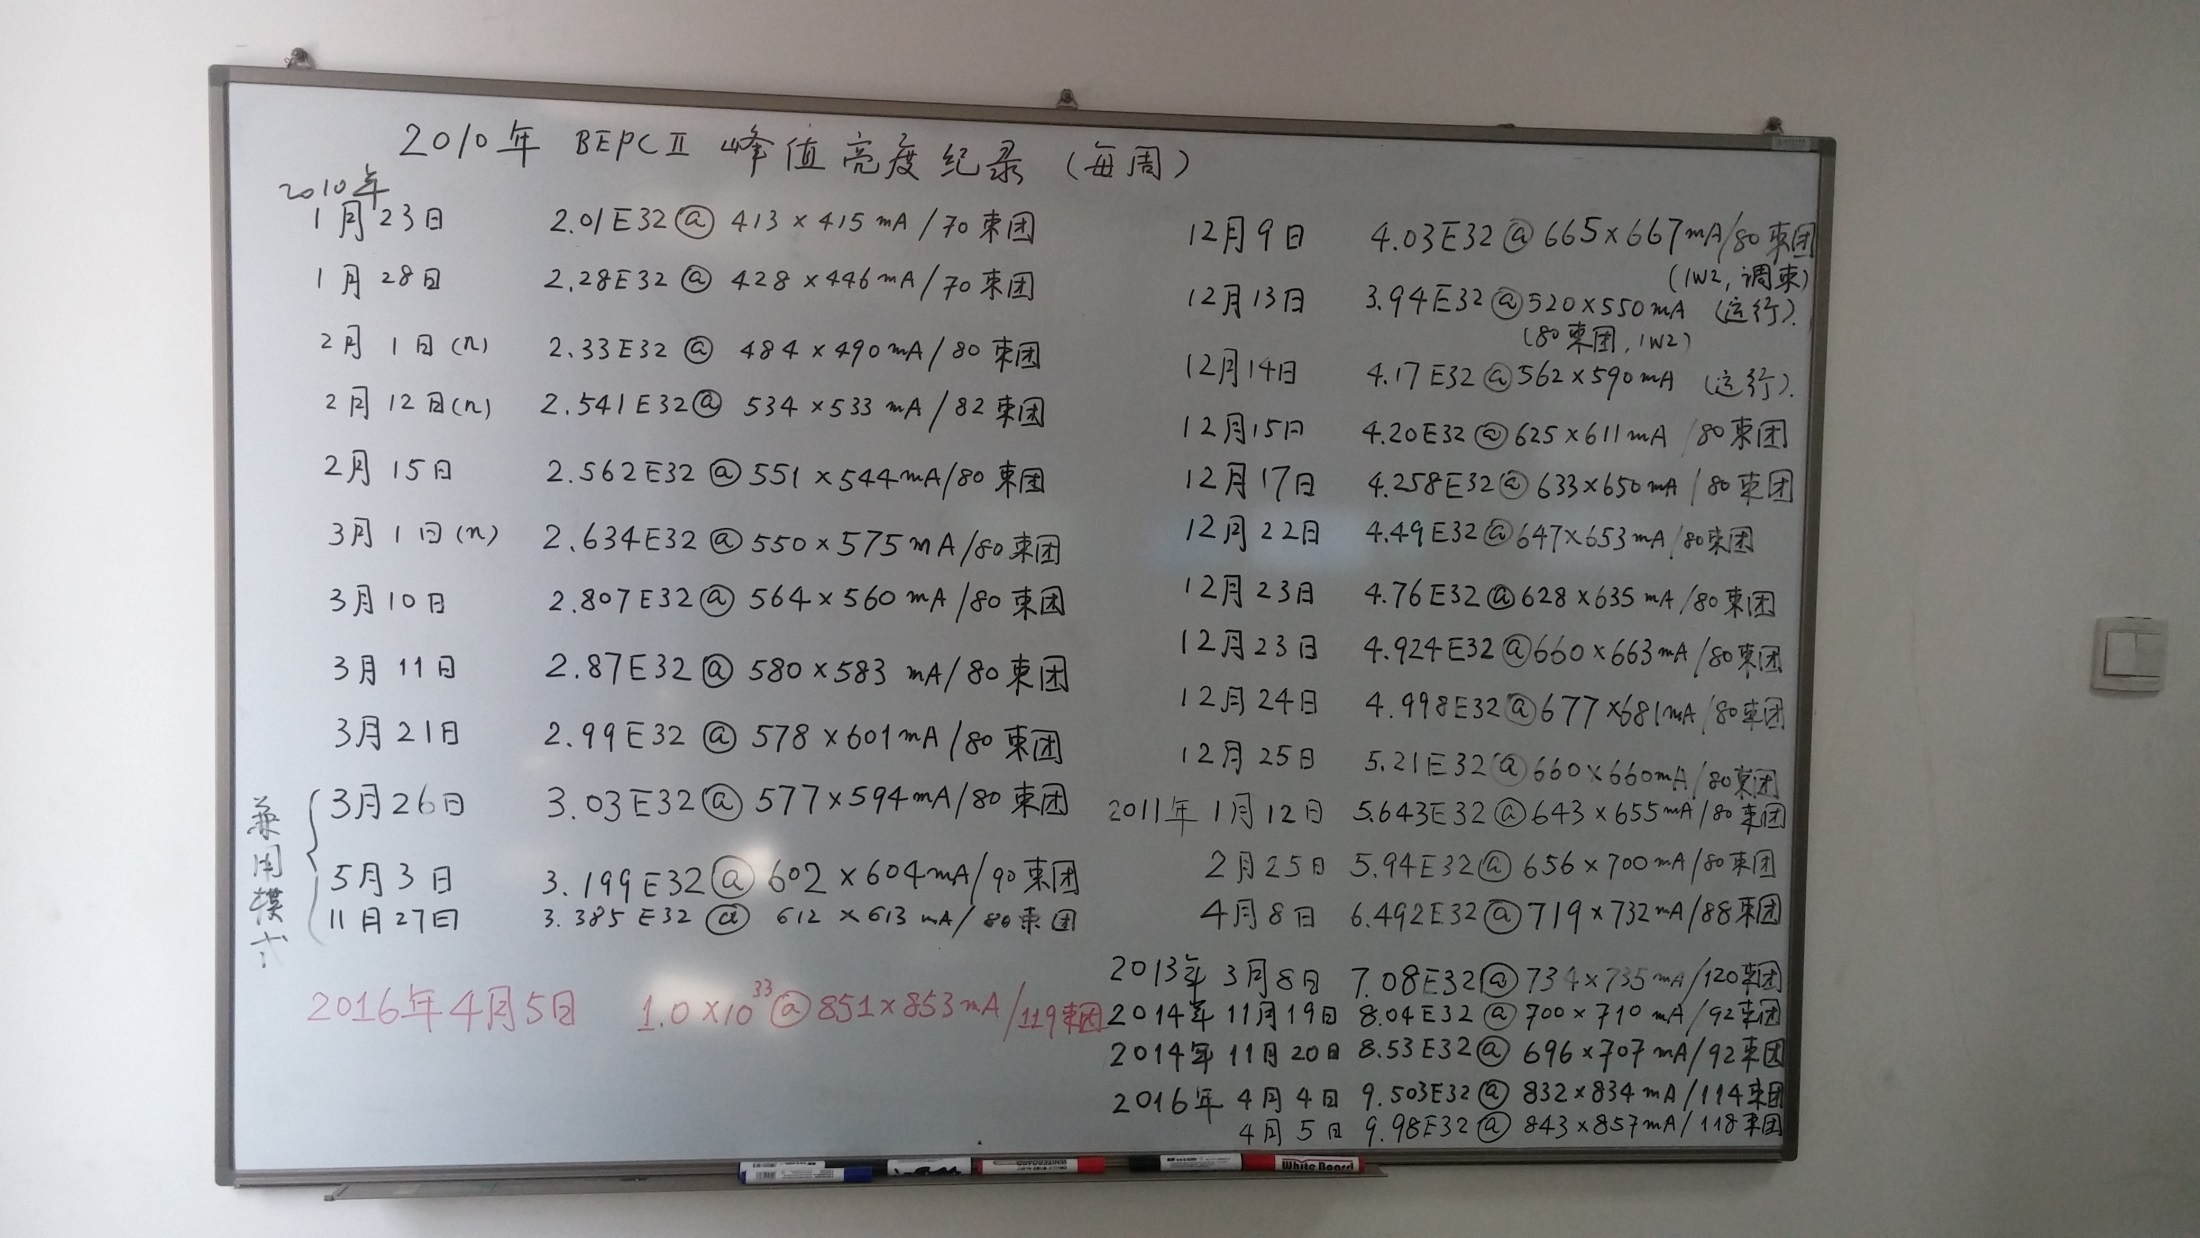 2010年 BEPCⅡ 峰值亮度纪录(每周)
2010年
1月23日 2.01E32@ 413×415mA/70束团
1月28日 2.28E32@ 428×446mA/70束团
2月1日(n) 2.33E32@ 484×490mA/80束团
2月12日(n) 2.541E32@ 534×533mA/82束团
2月15日 2.562E32@551×544mA/80束团
3月1日(n) 2.634E32@550×575mA/80束团
3月10日 2.807E32@564×560mA/80束团
3月11日 2.87E32@580×583mA/80束团
3月21日 2.99E32@578×601mA/80束团
兼用模式
3月26日 3.03E32@577×594mA/80束团
5月3日 3.199E32@602×604mA/90束团
11月27日 3.385E32@612×613mA/80束团
2016年4月5日 1.0×10³³@851×853mA/119束团
12月9日 4.03E32@665×667mA/80束团
(1W2,调束)
12月13日 3.94E32@520×550mA (运行).
(80束团,1W2)
12月14日 4.17E32@562×590mA (运行).
12月15日 4.20E32@625×611mA/80束团
12月17日 4.258E32@633×650mA/80束团
12月22日 4.49E32@647×653mA/80束团
12月23日 4.76E32@628×635mA/80束团
12月23日 4.924E32@660×663mA/80束团
12月24日 4.998E32@677×681mA/80束团
12月25日 5.21E32@660×660mA/80束团
2011年1月12日 5.643E32@643×655mA/80束团
2月25日 5.94E32@656×700mA/80束团
4月8日 6.492E32@719×732mA/88束团
2013年3月8日 7.08E32@734×735mA/120束团
2014年11月19日 8.04E32@700×710mA/92束团
2014年11月20日 8.53E32@696×707mA/92束团
2016年4月4日 9.503E32@832×834mA/114束团
4月5日 9.98E32@843×857mA/118束团
White Board